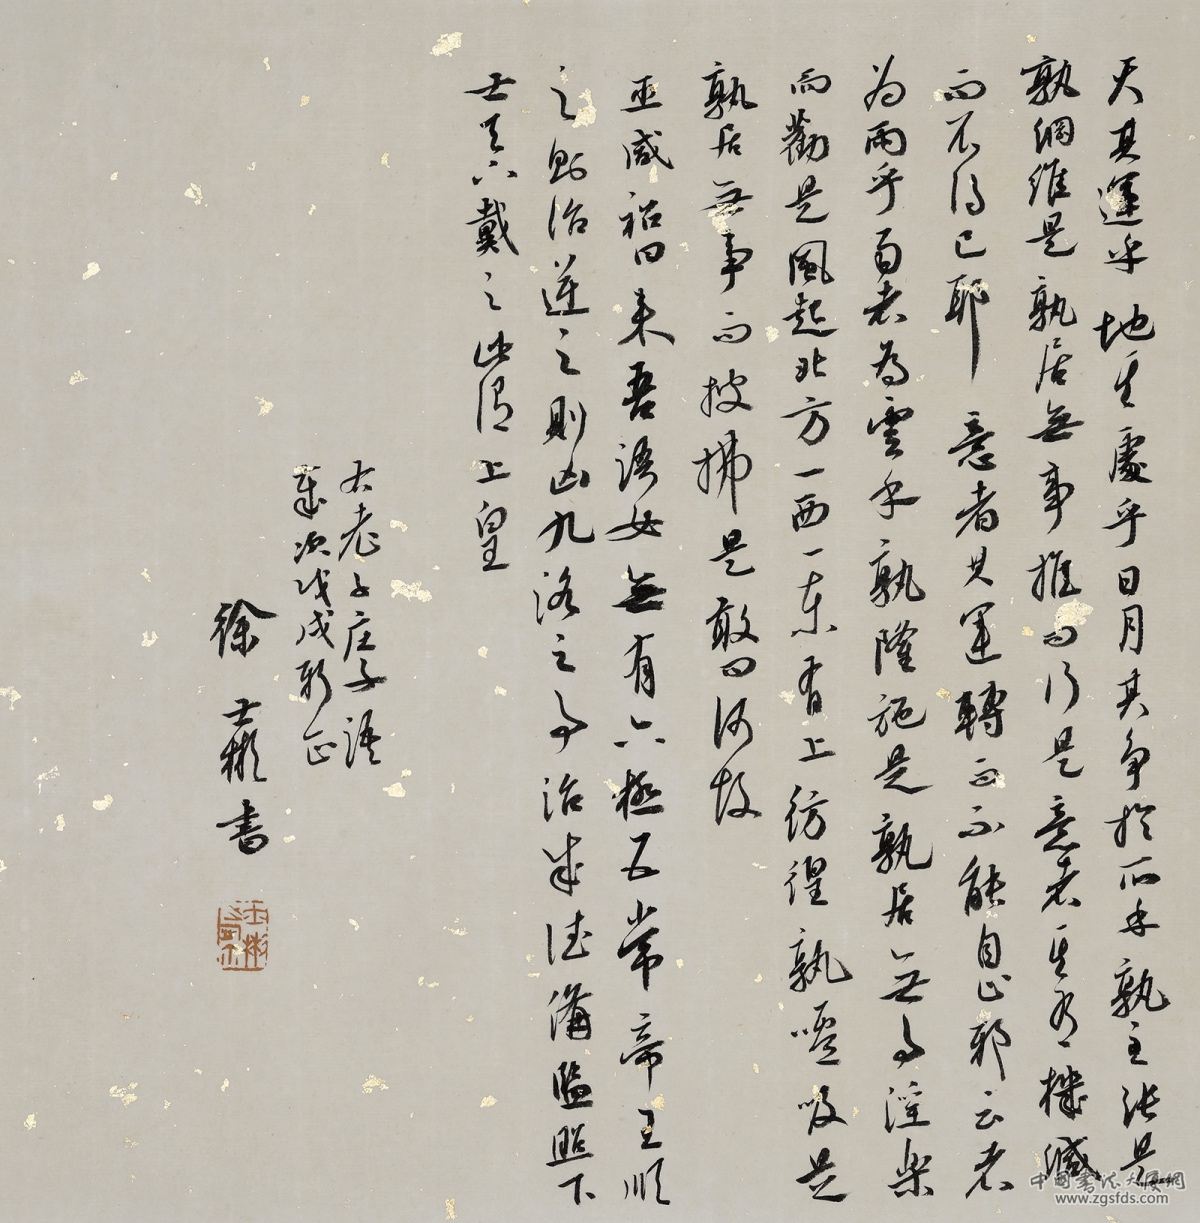 天其運乎地其處乎日月其争於所乎孰主張是
孰綱維是孰居無事推而行是意者其有機緘
而不得已耶意者其運轉而不能自止邪云者
為雨乎雨者為雲乎孰隆施是孰居無事淫樂
而勸是風起北方一西一東有上彷徨孰噓吸是
孰居無事而披拂是敢問何故
巫咸祒曰来吾語女無有六極五常帝王順
之則治逆之則凶九洛之事治成德備監照下
土天下戴之此謂上皇
右老子庄子語
歲次戊戌新正
徐士彬書
中國書法大厦網
www.zgsfds.com